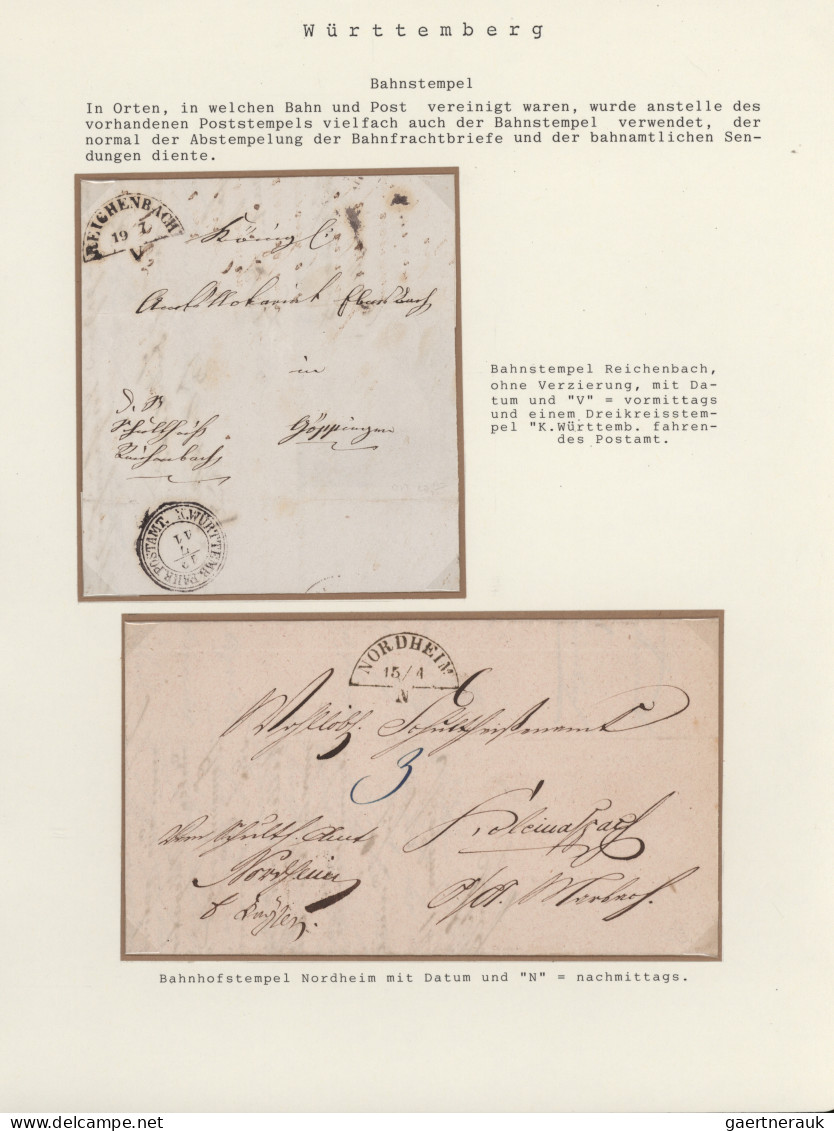 Württemberg
Bahnstempel
In Orten, in welchen Bahn und Post vereinigt waren, wurde anstelle des
vorhandenen Poststempels vielfach auch der Bahnstempel verwendet, der
normal der Abstempelung der Bahnfrachtbriefe und der bahnamtlichen Sen-
dungen diente.
REICHENBACH
19 7
V
Königl:
Amts Notariat Ebersbach
in
Göppingen
d. S
Schultheiß
Reichenbach
K.WÜRTTEMB. FAHR. POSTAMT.
12
7
A1
Bahnstempel Reichenbach,
ohne Verzierung, mit Da-
tum und "V" = vormittags
und einem Dreikreisstem-
pel "K.Württemb. fahren-
des Postamt.
NORDHEIM
15/4
N
Wohllöbl. Schultheißenamt
3
Vom Schulth. Amt
Nordheim
Kleinaspach
O/A. Marbach.
Bahnhofstempel Nordheim mit Datum und "N" = nachmittags.
gaertnerauk